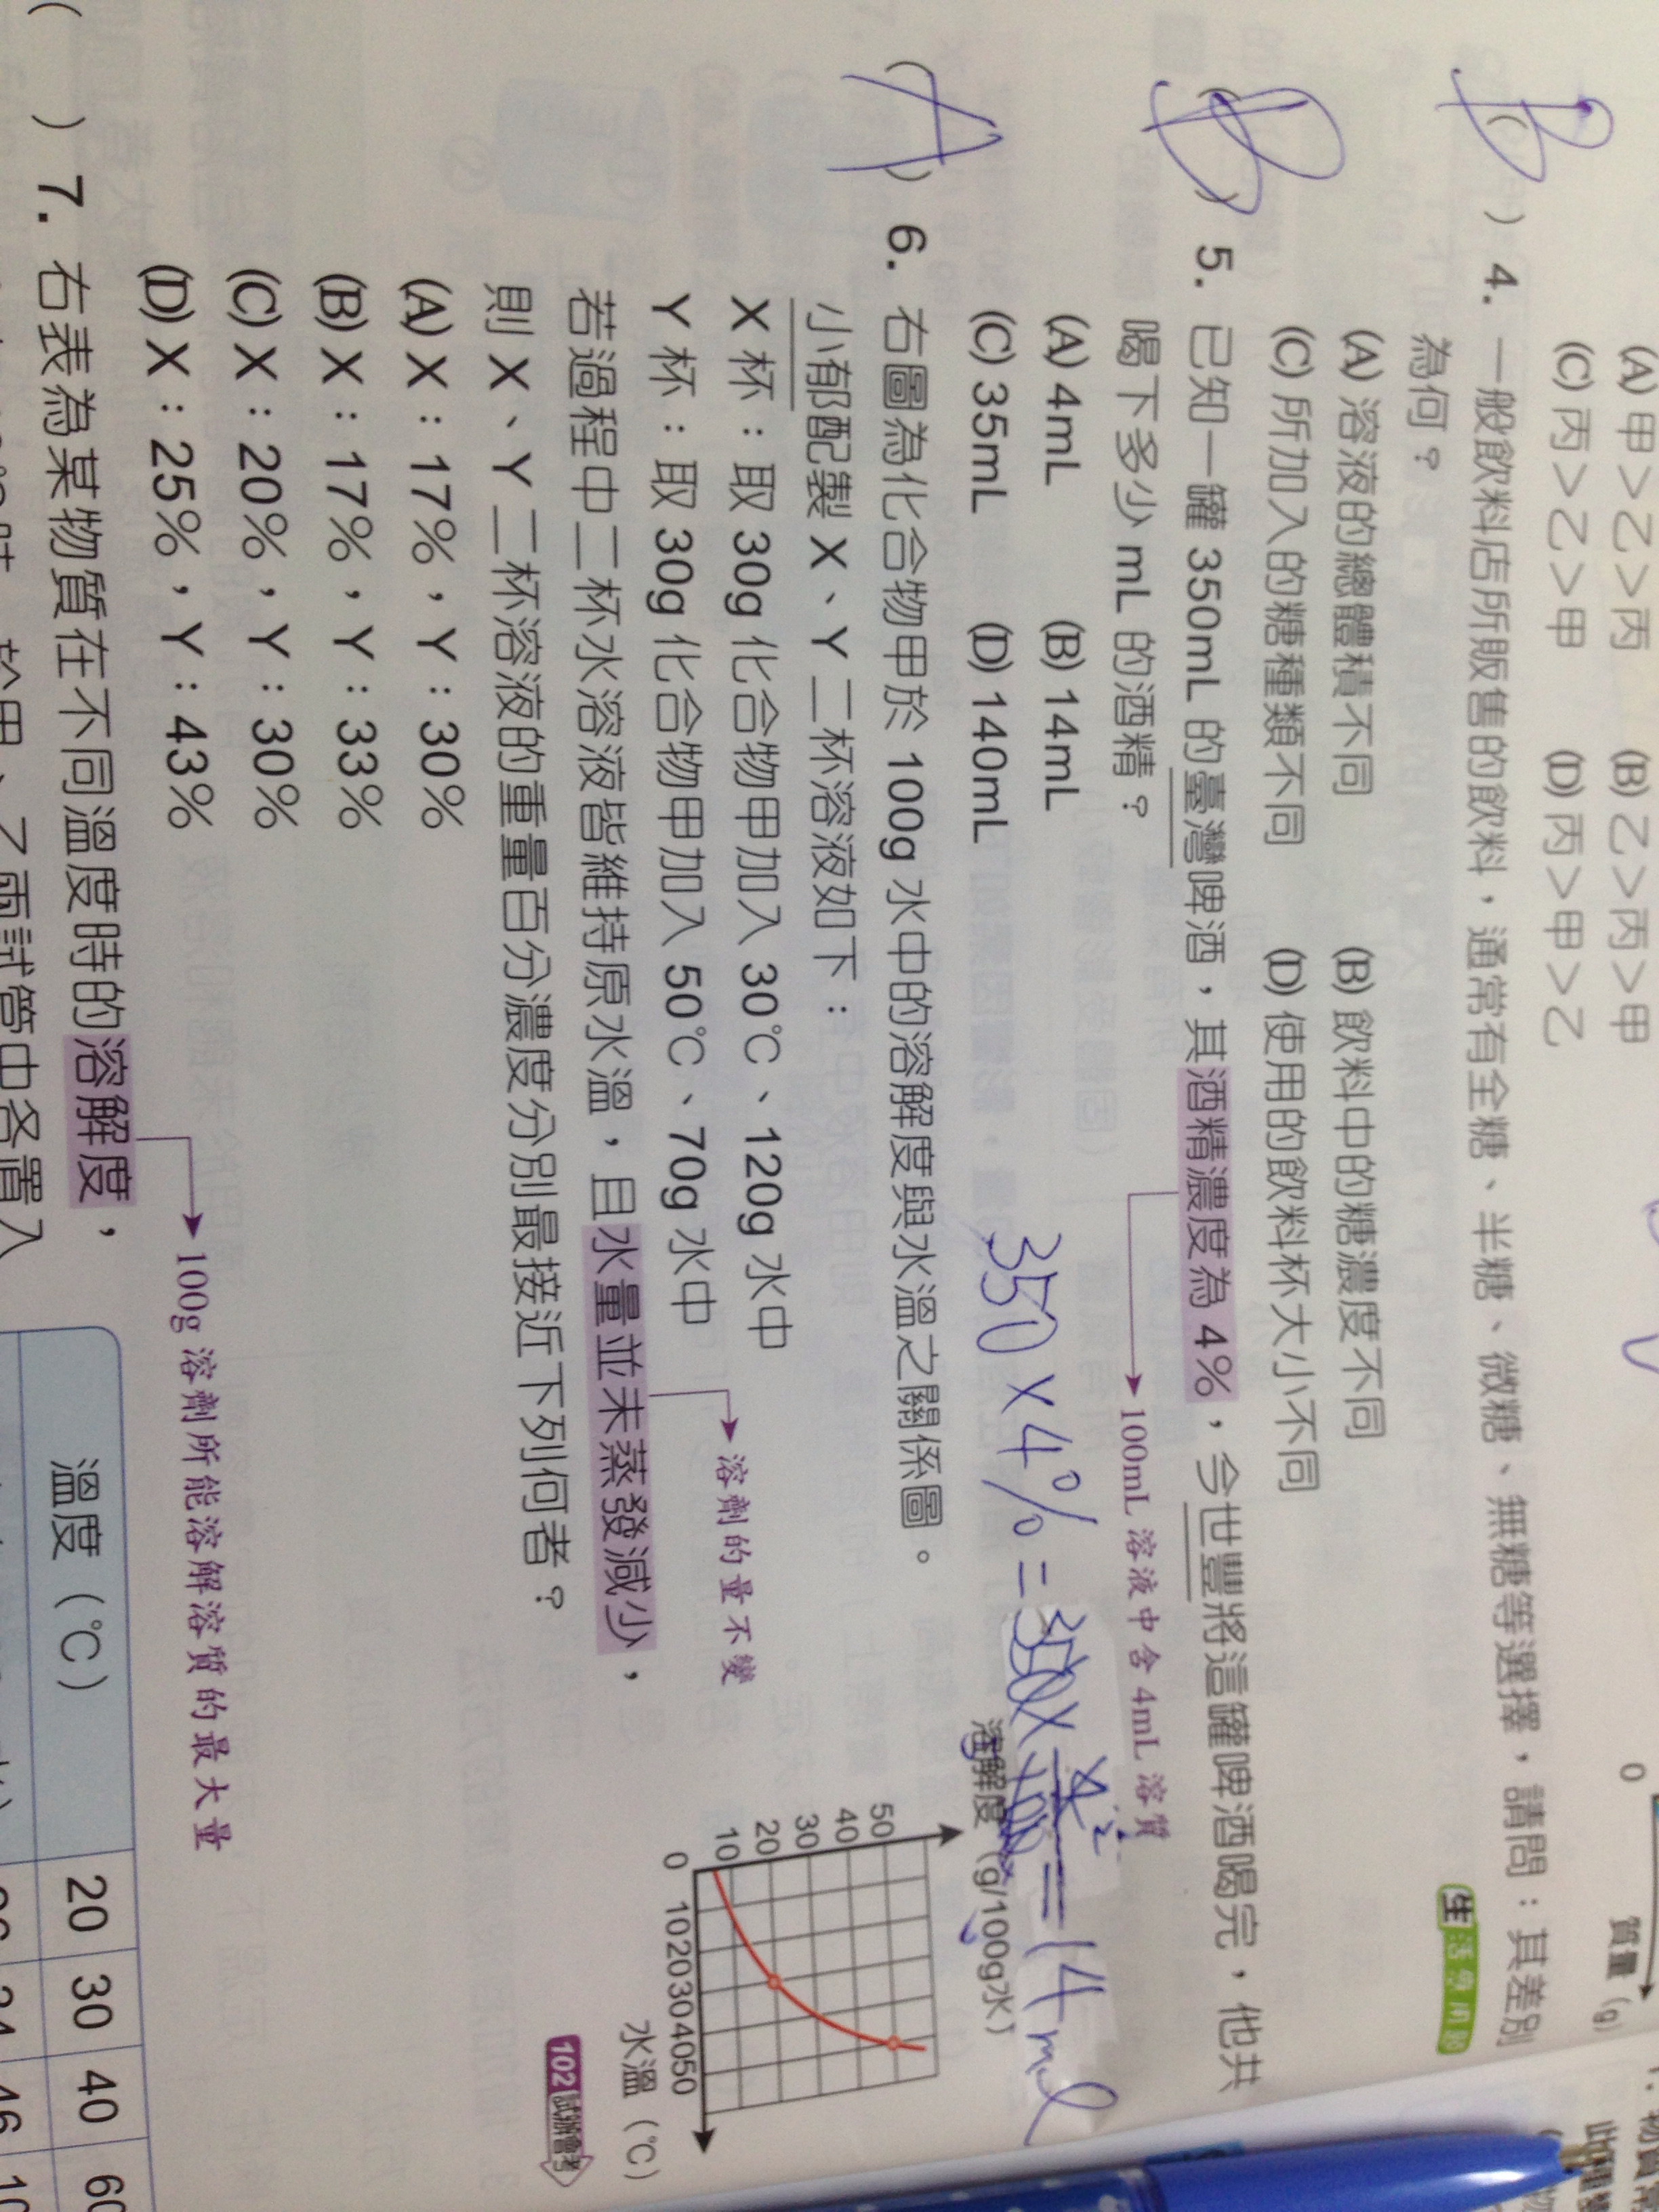 (A) 甲>乙>丙 (B) 乙>丙>甲
(C) 丙>乙>甲 (D) 丙>甲>乙
0 質量(g)
B
( ) 4. 一般飲料店所販售的飲料，通常有全糖、半糖、微糖、無糖等選擇，請問：其差別
為何？
生活應用題
(A) 溶液的總體積不同 (B) 飲料中的糖濃度不同
(C) 所加入的糖種類不同 (D) 使用的飲料杯大小不同
B
( ) 5. 已知一罐 350mL 的臺灣啤酒，其酒精濃度為 4%，今世豐將這罐啤酒喝完，他共
喝下多少 mL 的酒精？
100mL 溶液中含 4mL 溶質
(A) 4mL (B) 14mL
(C) 35mL (D) 140mL
350 × 4% = =14ml
A
( ) 6. 右圖為化合物甲於 100g 水中的溶解度與水溫之關係圖。
小郁配製 X、Y 二杯溶液如下：
X 杯：取 30g 化合物甲加入 30℃、120g 水中
Y 杯：取 30g 化合物甲加入 50℃、70g 水中
溶劑的量不變
若過程中二杯水溶液皆維持原水溫，且水量並未蒸發減少，
則 X、Y 二杯溶液的重量百分濃度分別最接近下列何者？
(A) X：17%，Y：30%
(B) X：17%，Y：33%
(C) X：20%，Y：30%
(D) X：25%，Y：43%
溶解度(g/100g水)
50
40
30
20
10
0 10 20 30 40 50
水溫(℃)
102 試辦會考
100g 溶劑所能溶解溶質的最大量
( ) 7. 右表為某物質在不同溫度時的溶解度，
溫度(℃) 20 30 40 60
乙兩試管中各置入